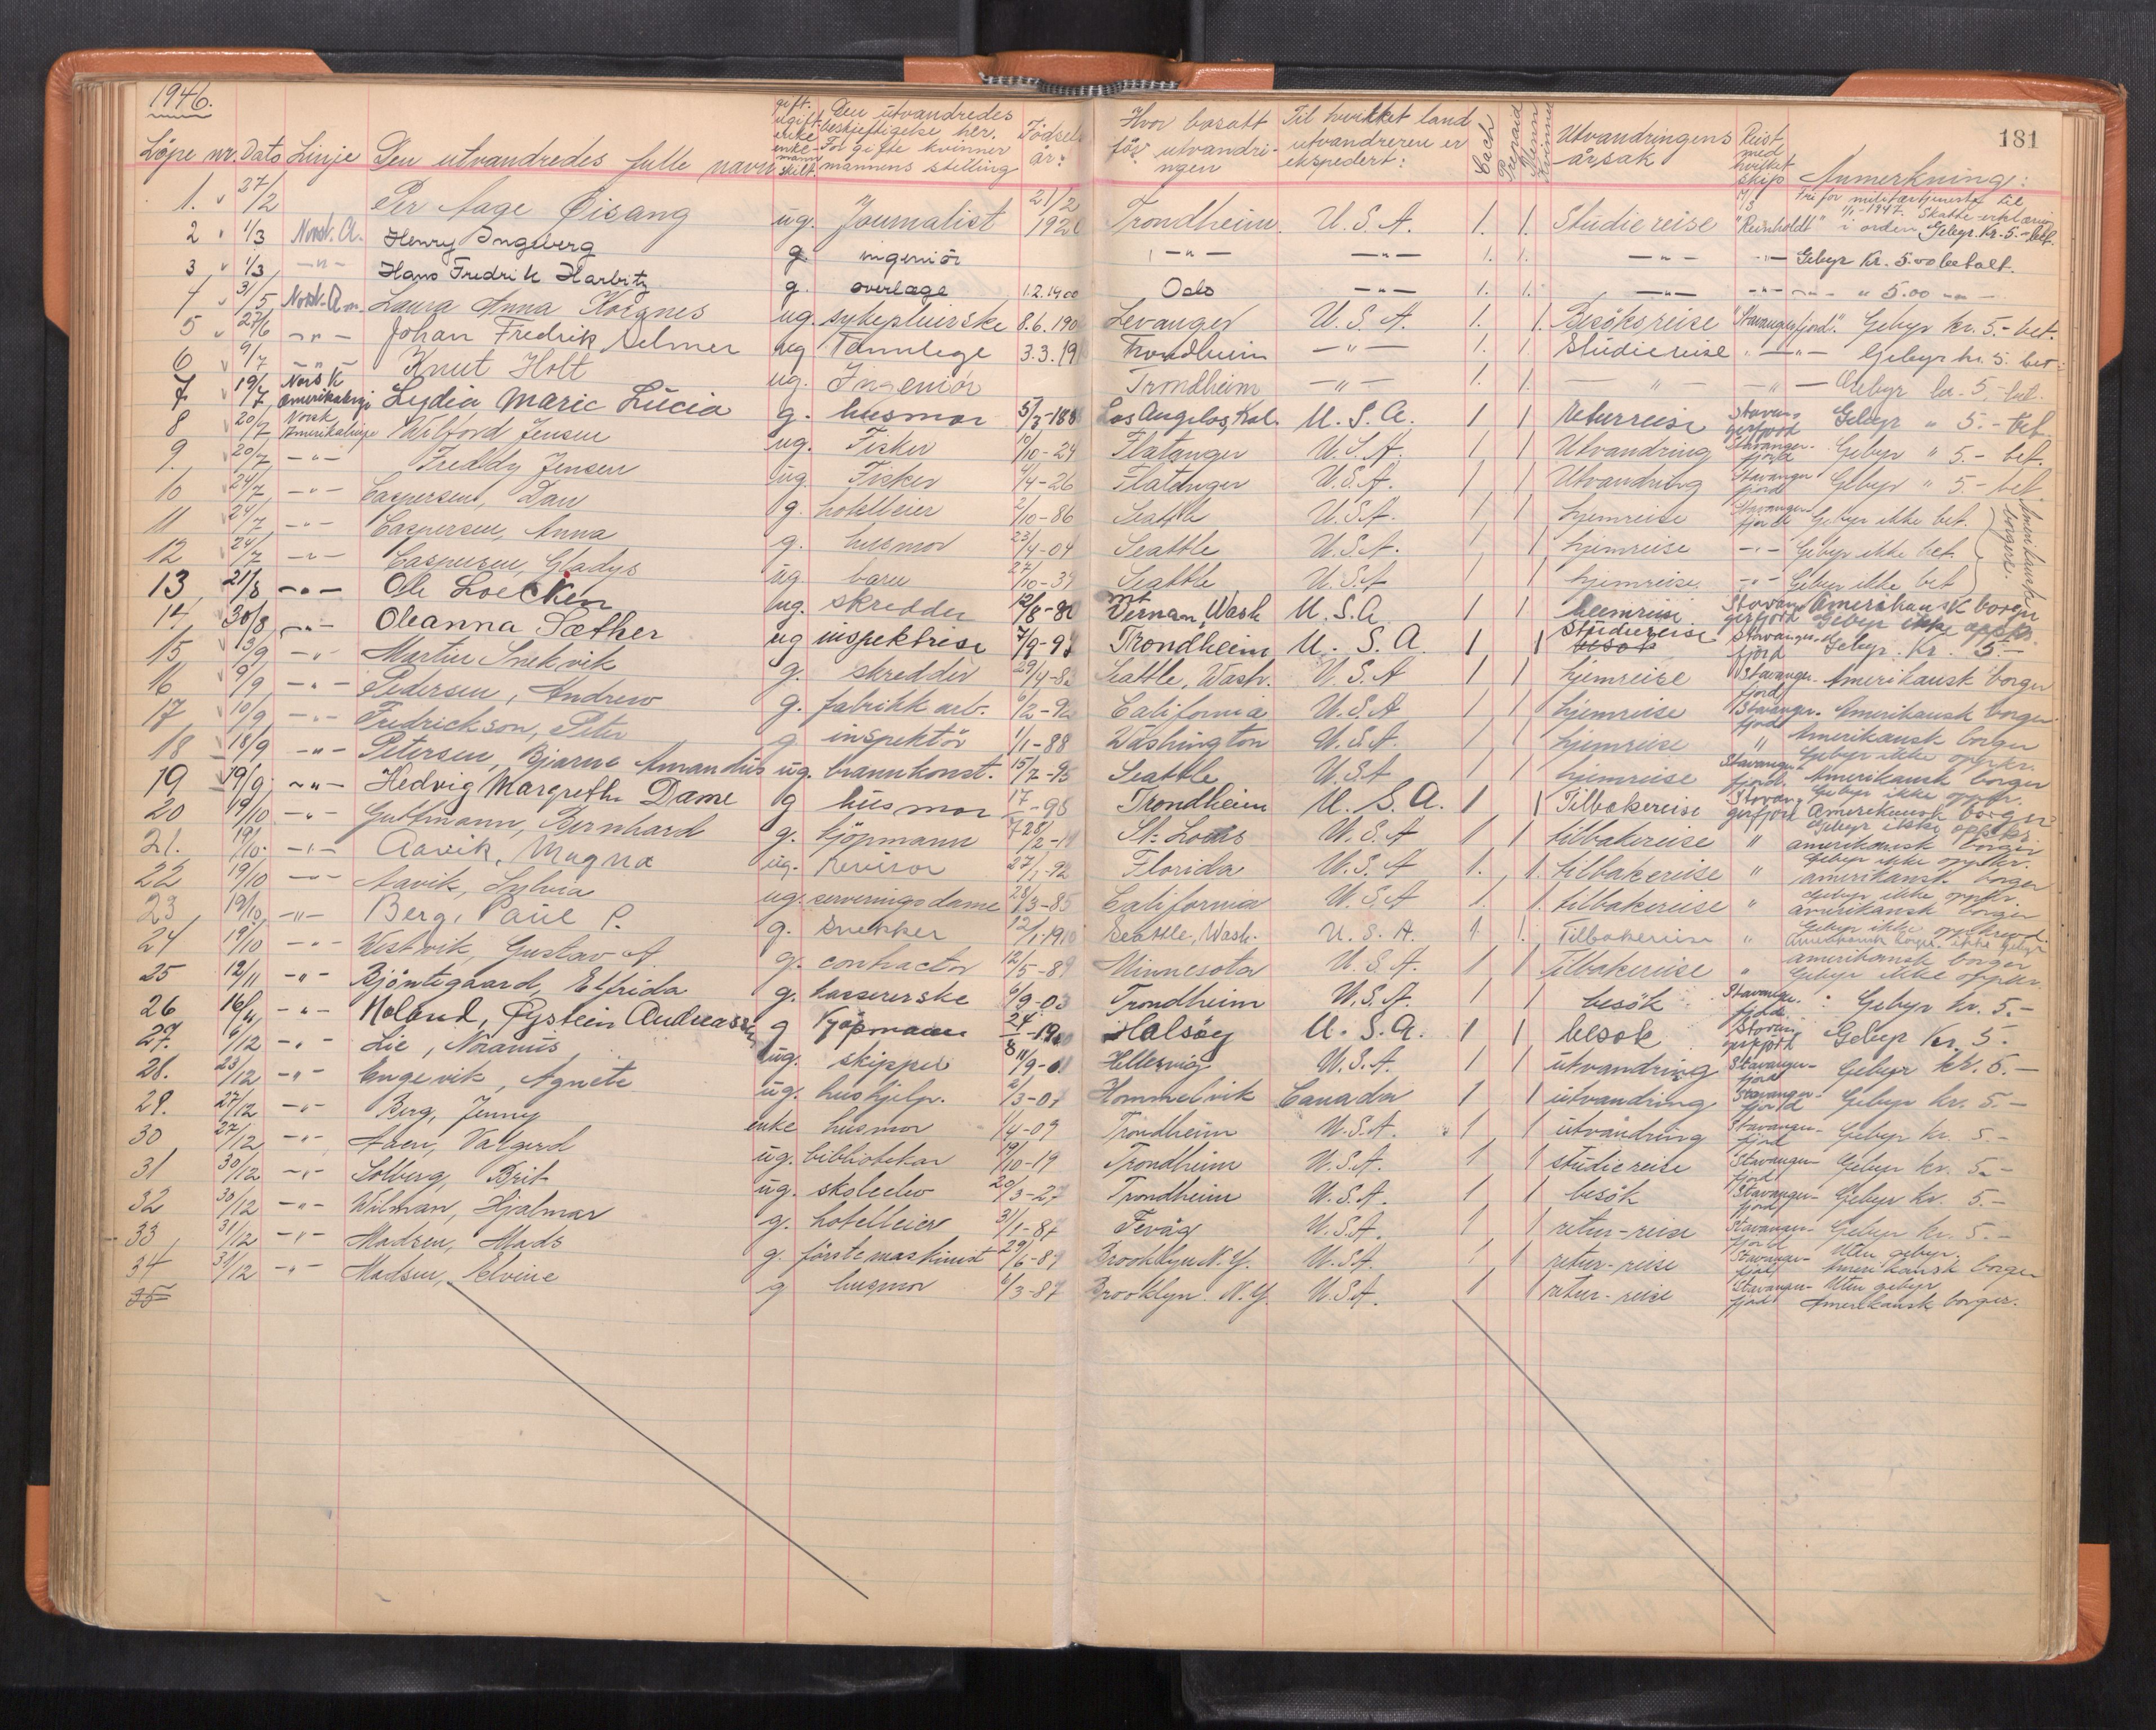 1946.
181
Löpe nr. Dato Linje Den utvandredes fulle navn gift. ugift. enke enke-mann skilt. Den utvandredes beskjeftigelse her. For gifte kvinner mannens stilling Födsels år: Hvor bosatt för utvandringen Til hvilket land utvandreren er ekspedert: Cach Prepaid Menn Kvinner Utvandringens årsak Reist med hvilket skip Anmerkning:
1. 27/2 Per Aage Öisang ug. Journalist 21/2 Trondheim. U.S.A. 1. 1. Studiereise "Reinholdt" Fri for militærtjeneste til 1/1-1947. Skatte erklæring i orden. Gebyr. Kr. 5.- bet.
2 1/3 Norsk. A. Henry Ingeberg g ingeniör -"- -"- 1. 1. -"- -"- Gebyr Kr. 5.00 betalt.
3 1/3 -"- Hans Fredrik Harbitz g. overlæge 1.2.1900 Oslo -"- 1. 1. -"- -"- -"- " 5.00 -"-
4 31/5 Norsk. A. Laura Anna ug. sykepleierske 8.6.190 Levanger U.S.A. 1. 1. Besöksreise "Stavangerfjord". Gebyr kr. 5.- bet.
5 27/6 -"- Johan Fredrik Selmer ug Tannlege 3.3.19 Trondheim -"- 1. 1. Studiereise -"- Gebyr kr. 5. bet.
6 9/7 -"- Knut Holt ug. Ingeniör Trondheim -"- 1. 1. -"- -"- Gebyr kr. 5,- bet.
7 19/7 Norsk Amerikalinje Lydia Marie Lucia g. husmor 5/3-188 Los Angelos, Kal. U.S.A. 1 1 Returreise Stavangerfjord Gebyr " 5.- bet.
8 20/7 Norsk Amerikalinje Wilford Jensen ug. Fisker 10/10-24 Flatanger U.S.A. 1 1 Utvandring Stavangerfjord Gebyr " 5.- bet.
9. 20/7 -"- Freddy Jensen ug. Fisker 4/4-26 Flatanger U.S.A. 1 1 Utvandring Stavangerfjord Gebyr " 5.- bet.
10 24/7 -"- Caspersen, Dan g. hotelleier 2/10-86 Seattle U.S.A. 1 1 hjemreise Stavangerfjord Gebyr ikke bet.
11 24/7 -"- Caspersen, Anna g. husmor 23/4-04 Seattle U.S.A. 1 1 hjemreise -"- Gebyr ikke bet.
12 24/7 -"- Caspersen, Gladys ug. barn 27/10-39 Seattle U.S.A 1 1 hjemreise. -"- Gebyr ikke bet
Amerikansk borgere.
13 21/8 -"- Ole Loecken ug. skredder 12/8-80 Mt Vernon, Wash U.S.A. 1 1 hjemreise. Stavangerfjord Amerikansk borger Gebyr ikke oppkr.
14 30/8 -"- Oleanna Sæther ug inspektrise 7/9-9 Trondheim U.S.A. 1 1 Studiereise besok Stavangerfjord Gebyr. Kr. 5.-
15 13/9 -"- Martin Snekvik g. skredder 29/4-8 Seattle, Wash. U.S.A 1 1 hjemreise Stavangerfjord Amerikansk borger
16 9/9 -"- Pedersen, Andrew g. fabrikk arb. 6/2-9 California U.S.A 1 1 hjemreise Stavangerfjord Amerikansk borger
17 10/9 -"- Fredrickson, Peter g inspektör 1/1-88 Washington U.S.A. 1 1 hjemreise " Amerikansk borger Gebyr ikke oppkr.
18 18/9 -"- Petersen, Bjarne Amandus ug. brannkonst. 15/7-9 Seattle U.S.A 1 1 hjemreise Stavangerfjord. Amerikansk borger Gebyr ikke oppkr.
19 19/9 -"- Hedvig Margrethe Dame g husmor 17/7-98 Trondheim U.S.A. 1 1 Tilbakereise Stavangerfjord Amerikansk borger Gebyr ikke oppkr
20 19/10 -"- Guttmann, Bernhard g. kjöpmann 25/2- St. Louis U.S.A 1 1 tilbakereise " amerikansk borger Gebyr ikke oppkr.
21. 19/10. -"- Aavik, Magna ug. Revisor 27/1-92 Florida U.S.A 1. 1. tilbakereise " amerikansk borger Gebyr ikke oppkr
22 19/10 -"- Aavik, Sylvia ug. serveringsdame 28/3-85 California U.S.A 1. 1. tilbakereise " amerikansk borger Gebyr ikke oppkrevd.
23 19/10 -"- Berg, Paul P. g. Snekker 12/1-19 Seattle, Wash. U.S.A. 1 1. Tilbakereise " Amerikansk borger. ikke gebyr
24 19/10 -"- Westvik, Gustav A g. contractor 12/5-89 Minnesota U.S.A. 1 1 Tilbakereise " amerikansk borger Gebyr ikke oppkr.
25 12/11 -"- Björntegaard, Elfrida g. kassererske 6/9-03 Trondheim U.S.A. 1 1 besök Stavangerfjord. Gebyr kr. 5.-
26 16/11 -"- Moland, Öystein Andreassen g Kjöpmann 24/8-19 Halsöy U.S.A. 1 1 besok Stavangerfjord Gebyr Kr. 5.
27. 6/12 -"- Lie, Noranus ug. skipper 11/9-0 Hellesvig U.S.A. 1 1 utvandring Stavangerfjord Gebyr kr. 5.-
28. 23/12 -"- Engevik, Agnete ug. hushjelp. 2/3-07 Hommelvik Canada 1 1 utvandring Stavangerfjord Gebyr kr. 5.-
29. 27/12 -"- Berg, Jenny enke husmor 1/4-09 Trondheim U.S.A. 1 1 utvandring Stavangerfjord Gebyr kr. 5.-
30 27/12 -"- Aaen, Valgerd ug. bibliotekar 19/10-19 Trondheim U.S.A. 1 1 studiereise Stavangerfjord Gebyr kr. 5.-
31 30/12 -"- Solberg, Brit ug. skoleelev 20/3-27 Trondheim U.S.A. 1 1 besök Stavangerfjord Gebyr kr. 5.-
32 30/12 -"- Wilman, Hjalmar g. hotelleier 31/1-87 Fevåg U.S.A. 1 1 retur-reise Stavangerfjord Gebyr kr. 5.-
33 31/12 -"- Madsen, Mads g. förstemaskinist 29/6-89 Brooklyn N.Y. U.S.A. 1 1 retur-reise Stavangerfjord Uten gebyr. Amerikansk borger
34 31/12 -"- Madsen, Elvine g husmor 6/3-87 Brooklyn. N.Y. U.S.A. 1 1 retur-reise Stavangerfjord Uten gebyr Amerikansk borger.
35